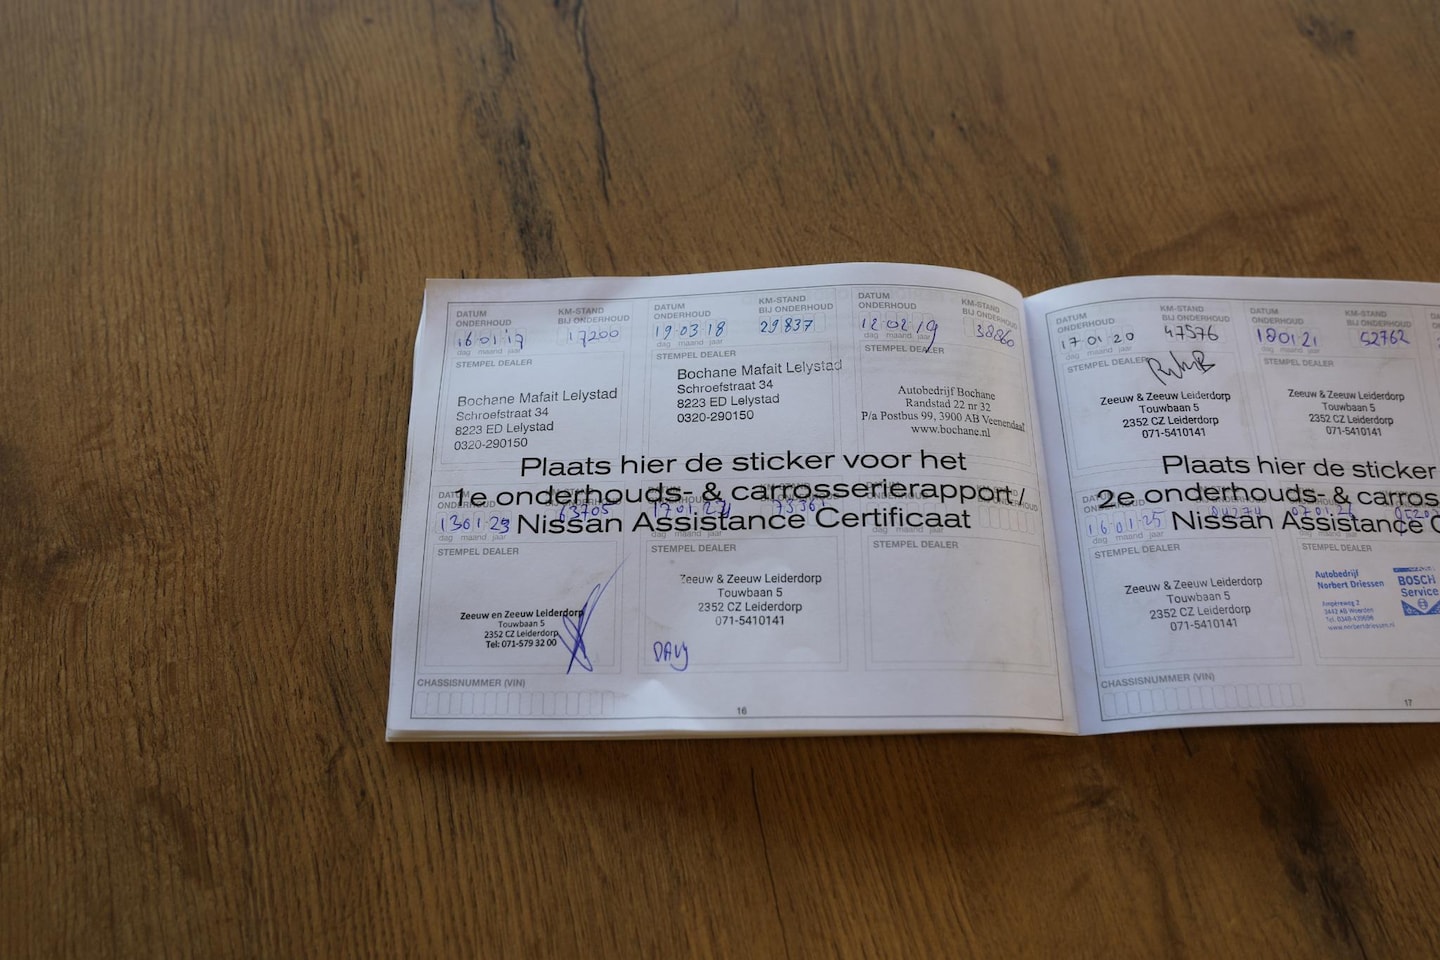 DATUM ONDERHOUD
16 01 17
dag maand jaar
KM-STAND BIJ ONDERHOUD
17200
STEMPEL DEALER
Bochane Mafait Lelystad
Schroefstraat 34
8223 ED Lelystad
0320-290150
DATUM ONDERHOUD
19 03 18
dag maand jaar
KM-STAND BIJ ONDERHOUD
29837
STEMPEL DEALER
Bochane Mafait Lelystad
Schroefstraat 34
8223 ED Lelystad
0320-290150
DATUM ONDERHOUD
12 02 19
KM-STAND BIJ ONDERHOUD
38860
STEMPEL DEALER
Autobedrijf Bochane
Randstad 22 nr 32
P/a Postbus 99, 3900 AB Veenendaal
www.bochane.nl
Plaats hier de sticker voor het
1e onderhouds- & carrosserierapport /
Nissan Assistance Certificaat
DATUM ONDERHOUD
13 01 23
dag maand jaar
63705
STEMPEL DEALER
Zeeuw en Zeeuw Leiderdorp
Touwbaan 5
2352 CZ Leiderdorp
Tel: 071-579 32 00
dag maand jaar
STEMPEL DEALER
Zeeuw & Zeeuw Leiderdorp
Touwbaan 5
2352 CZ Leiderdorp
071-5410141
DAVY
STEMPEL DEALER
CHASSISNUMMER (VIN)
16
DATUM ONDERHOUD
17 01 20
dag maand jaar
KM-STAND BIJ ONDERHOUD
47576
STEMPEL DEALER
Zeeuw & Zeeuw Leiderdorp
Touwbaan 5
2352 CZ Leiderdorp
071-5410141
DATUM ONDERHOUD
18 01 21
dag maand jaar
KM-STAND BIJ ONDERHOUD
52762
STEMPEL DEALER
Zeeuw & Zeeuw Leiderdorp
Touwbaan 5
2352 CZ Leiderdorp
071-5410141
Plaats hier de sticker
2e onderhouds- & carros
Nissan Assistance C
16 01 25
dag maand jaar
STEMPEL DEALER
Zeeuw & Zeeuw Leiderdorp
Touwbaan 5
2352 CZ Leiderdorp
071-5410141
STEMPEL DEALER
Autobedrijf
Norbert Driessen
Ampèreweg 2
3442 AB Woerden
BOSCH
Service
CHASSISNUMMER (VIN)
17